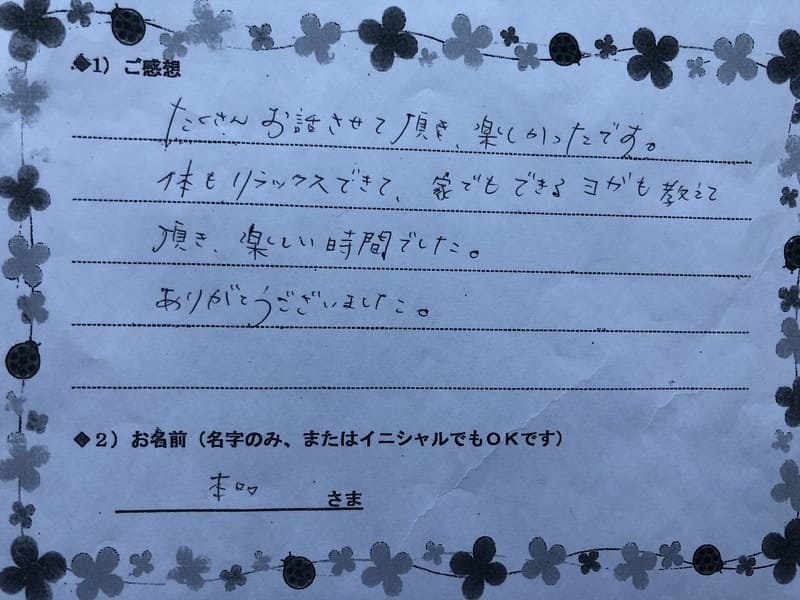 ◆1）ご感想
たくさんお話させて頂き、楽しかったです。
体もリラックスできて、家でもできるヨガも教えて
頂き、楽しい時間でした。
ありがとうございました。
◆2）お名前（名字のみ、またはイニシャルでもＯＫです）
さま